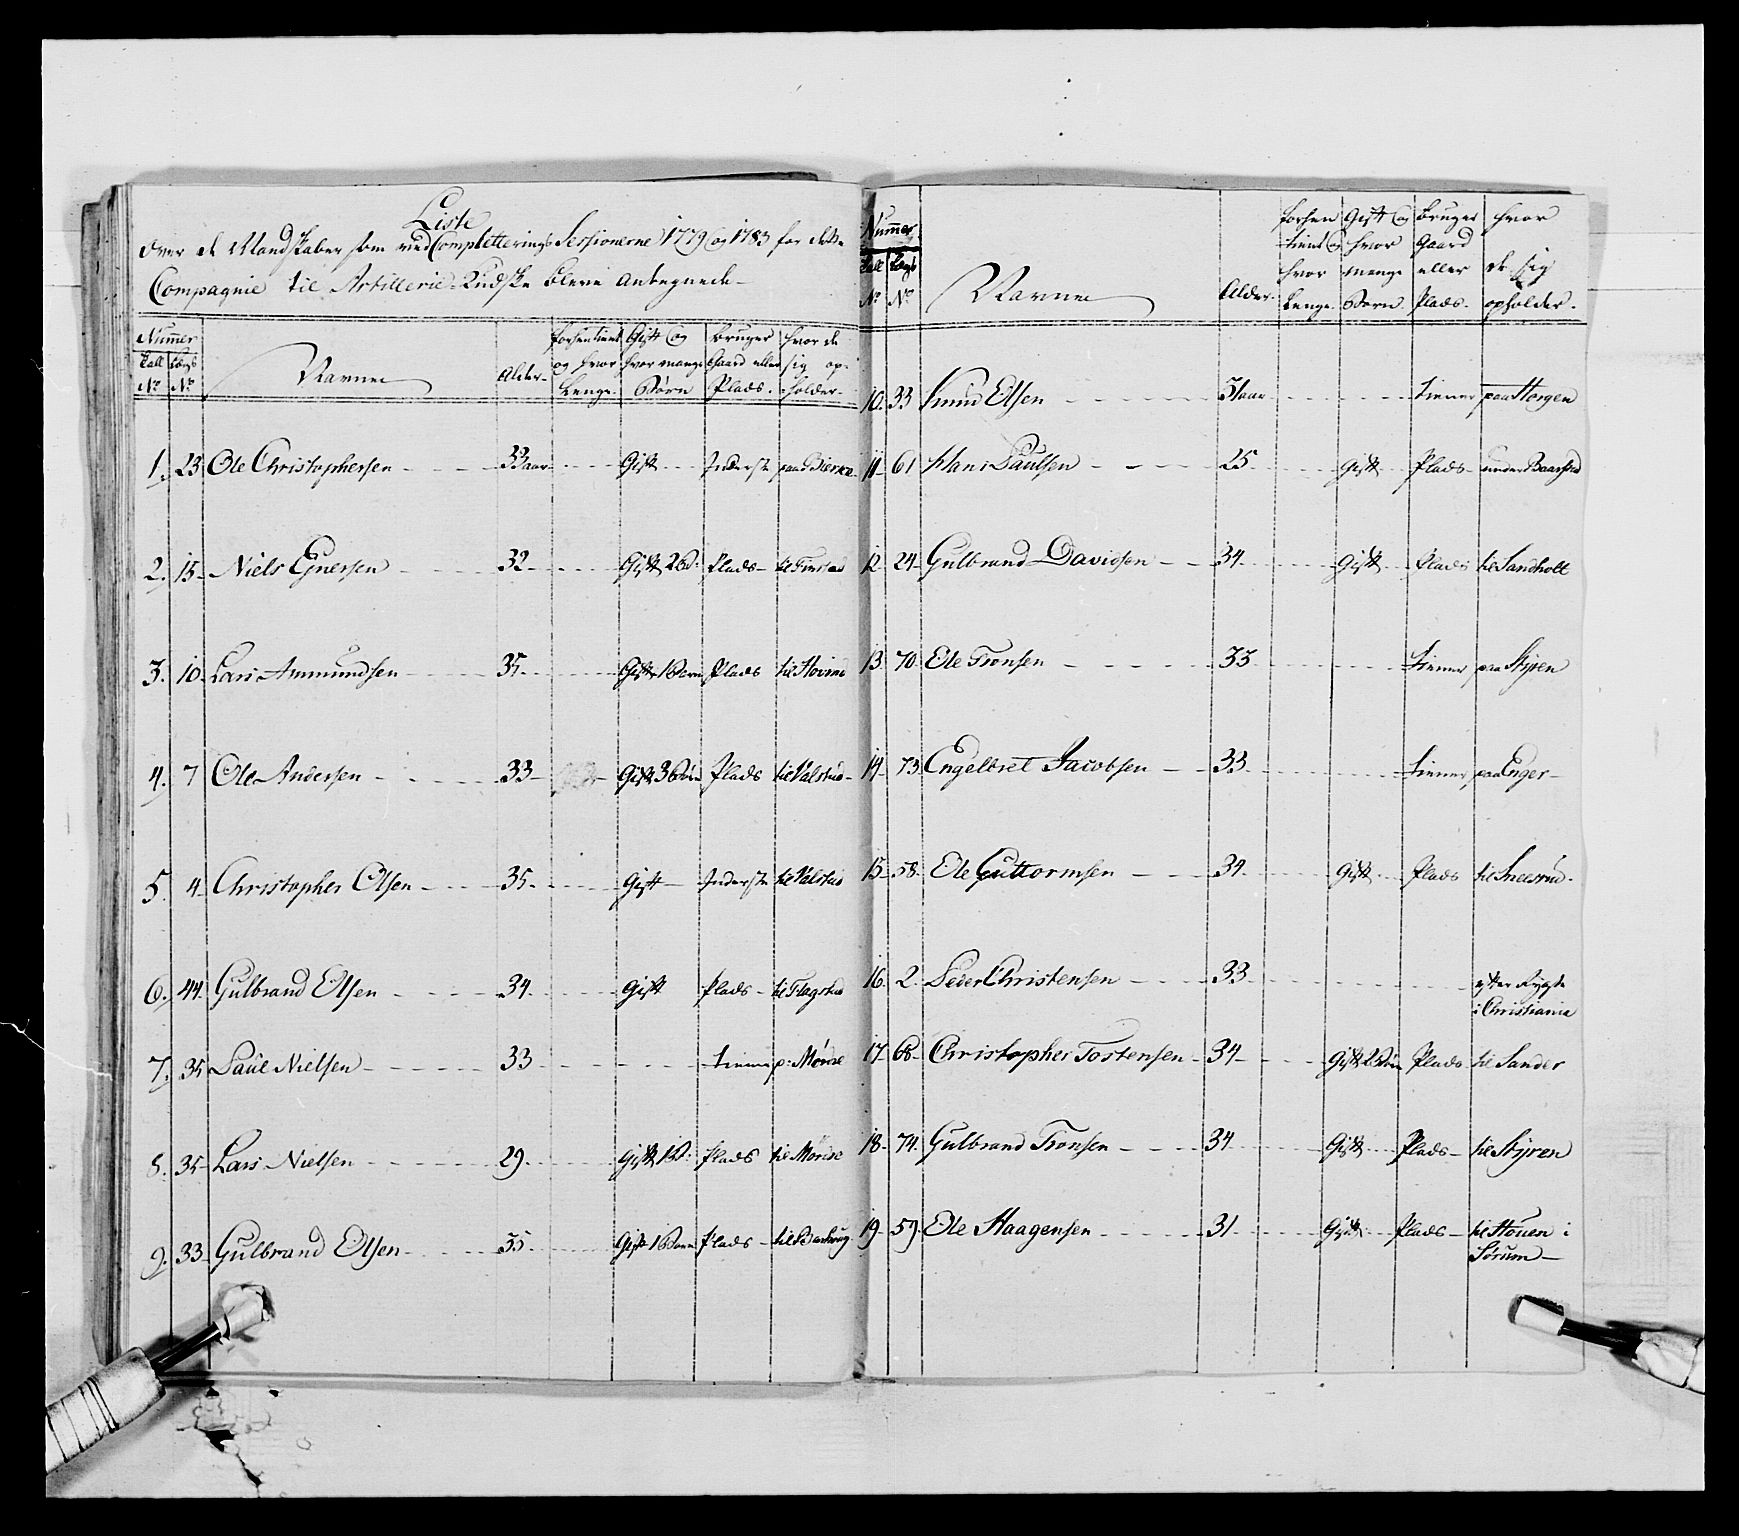 Liste
over de Mandskaber som ved Completterings Sessionerne 1779 og 1783 for dette
Compagnie til Artillerie Kudske bleve antegnede
Nummer
Tall No Lægs No Navne Alder fortient og hvor Lenge Gift og hvor mange Børn bruger Gaard eller Plads hvor de sig opholder
1. 23 Ole Christophersen 33 aar Gift Inderste paa Bierke
2. 15 Niels Ejnersen 32 Gift 2 B: Plads til
3. 10 Lars Ammundsen 35 Gift 1 Børn Plads til Hovind
4. 7 Ole Andersen 33 Gift 3 Børn Plads til Valstad
5. 4 Christopher Olsen 35 Gift Inderste til Valstad
6. 44 Gulbrand Olsen 34 Gift Plads til Flagstad
7. 35 Paul Nielsen 33 tienner p: Mørise
8. 35 Lars Nielsen 29 Gift 1 B: Plads til Mørise
9. 33 Gulbrand Olsen 35 Gift 1 Børn Plads
Nummer
Tall No Lægs No Navne Alder fortient og hvor Lenge Gift og hvor mange Børn bruger Gaard eller Plads hvor de sig opholder
10. 33 Knud Olsen 31 aar tienner paa Horgen
11 61 Hans Paulsen 25 Gift Plads under Baarstad
12 24 Gulbrand Davidsen 34 Gift Plads til Sandholt
13 70 Ole Tronsen 33 tienner paa Styren
14 73 Engelbret Jacobsen 33 tienner paa Enger
15 58 Ole Guttormsen 34 Gift Plads til Sneesrud
16 2 Peder Christensen 33 efter Rygte
i Christiania
17 68 Christopher Tostensen 34 Gift 2 Børn Plads til Sander
18 74 Gulbrand Tronsen 34 Gift Plads til Styren
19 59 Ole Haagensen 31 Gift Plads til Houen i
Sørum